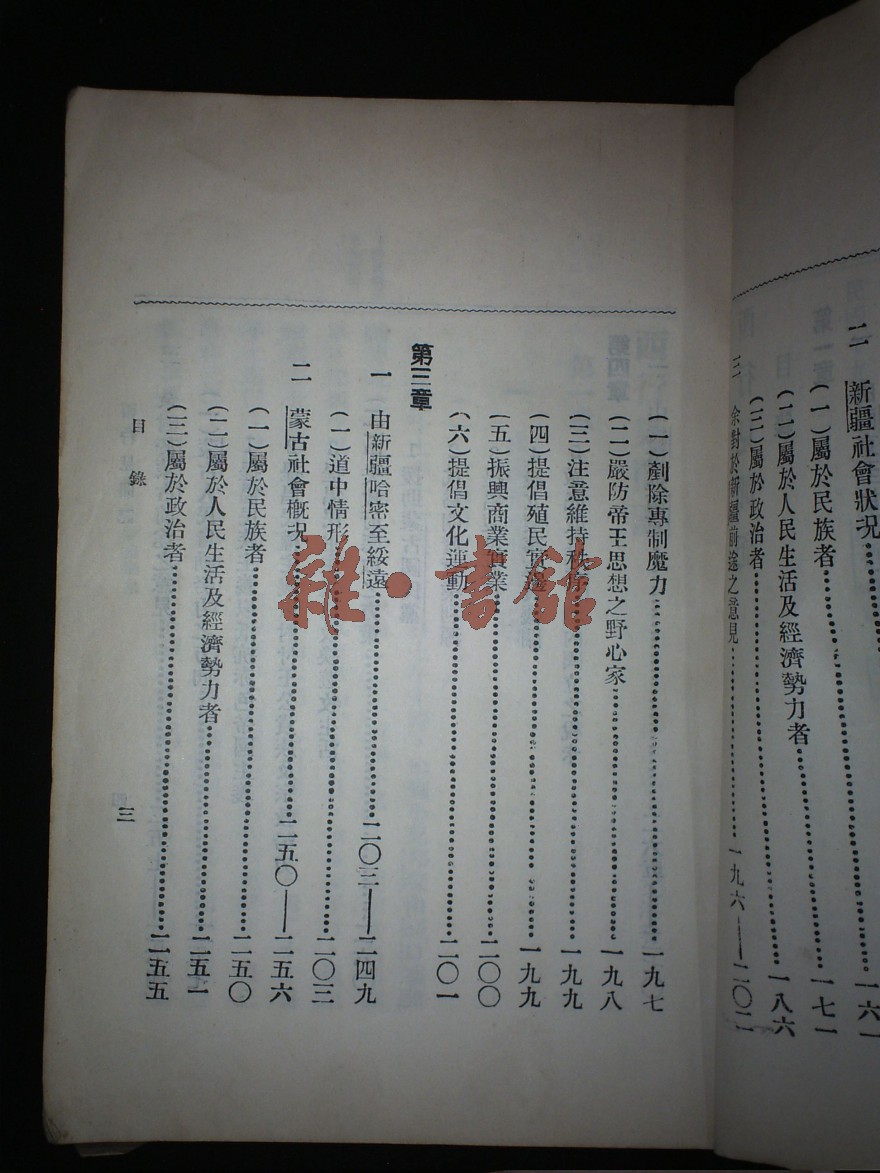 二 新疆社會狀況………一六一
(一)屬於民族者………一七一
(二)屬於人民生活及經濟勢力者………一八六
(三)屬於政治者………
三 余對於新疆前途之意見………一九六——二〇二
(一)剷除專制魔力………一九七
(二)嚴防帝王思想之野心家………一九八
(三)注意維持秩序………一九九
(四)提倡殖民實邊………一九九
(五)振興商業實業………二〇〇
(六)提倡文化運動………二〇一
第三章
一 由新疆哈密至綏遠………二〇三——二四九
(一)道中情形………二〇三
二 蒙古社會概況………二五〇——二五六
(一)屬於民族者………二五〇
(二)屬於人民生活及經濟勢力者………二五一
(三)屬於政治者………二五五
目錄
三
雜·書館